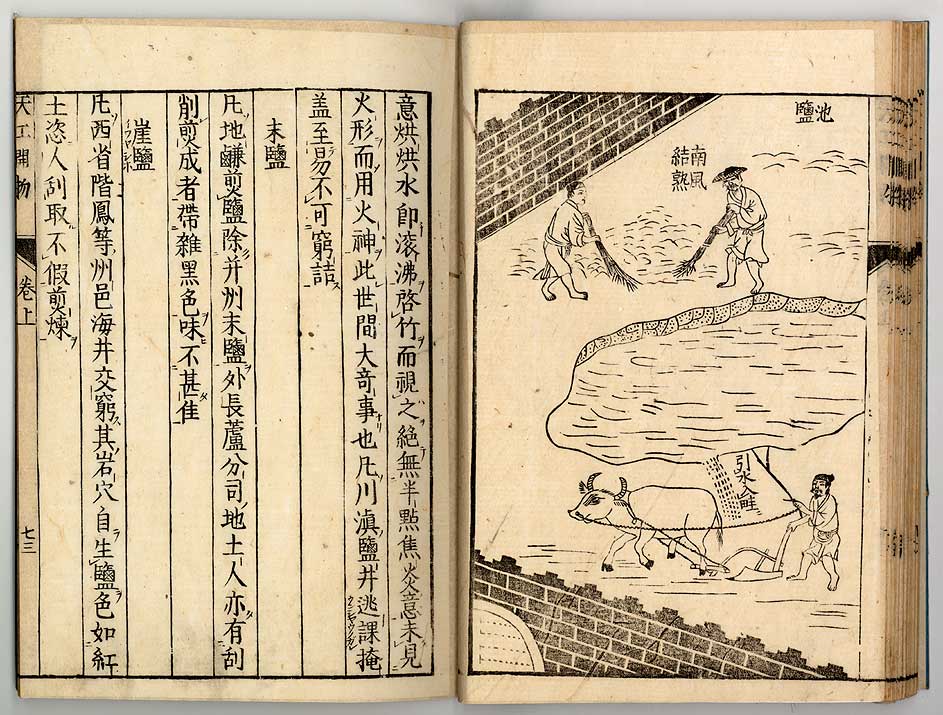 池鹽
南風
結熟
引水入畦
意烘烘水卽滚沸啓竹而視之絕無半㸃焦炎意未見
火形而用火神此世間大奇事也凡川滇鹽井逃課掩
盖至易不可窮詰
末鹽
凡地鹻煎鹽除并州末鹽外長蘆分司地土人亦有刮
削煎成者帶雜黑色味不甚佳
崖鹽
凡西省階鳳等州邑海井交窮其岩穴自生鹽色如紅
土恣人刮取不假煎煉
天工開物 卷上 七三